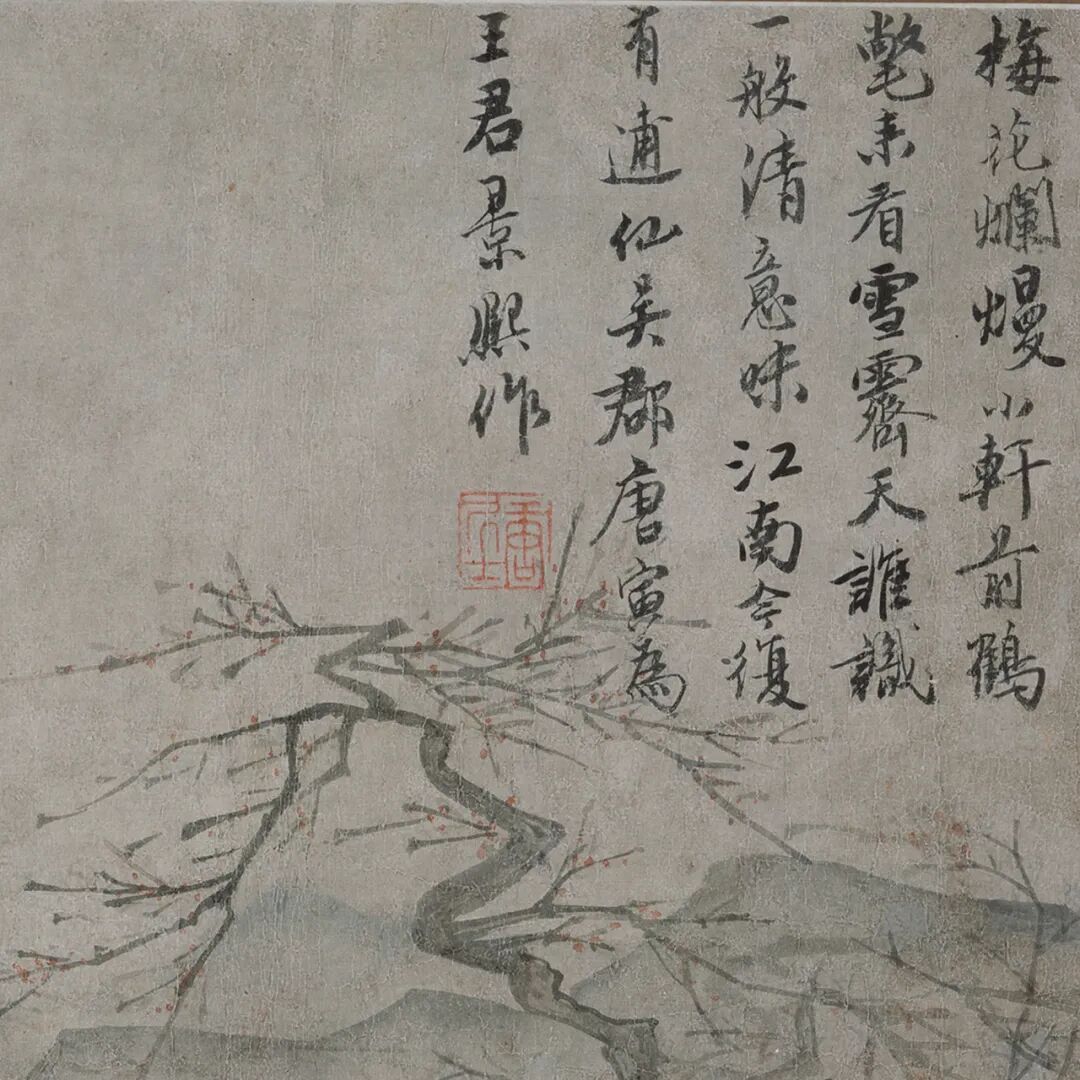 梅花爛熳小軒前鶴
氅来看雪霽天誰識
一般清意味江南今復
有逋仙吴郡唐寅為
王君景熙作
唐居士